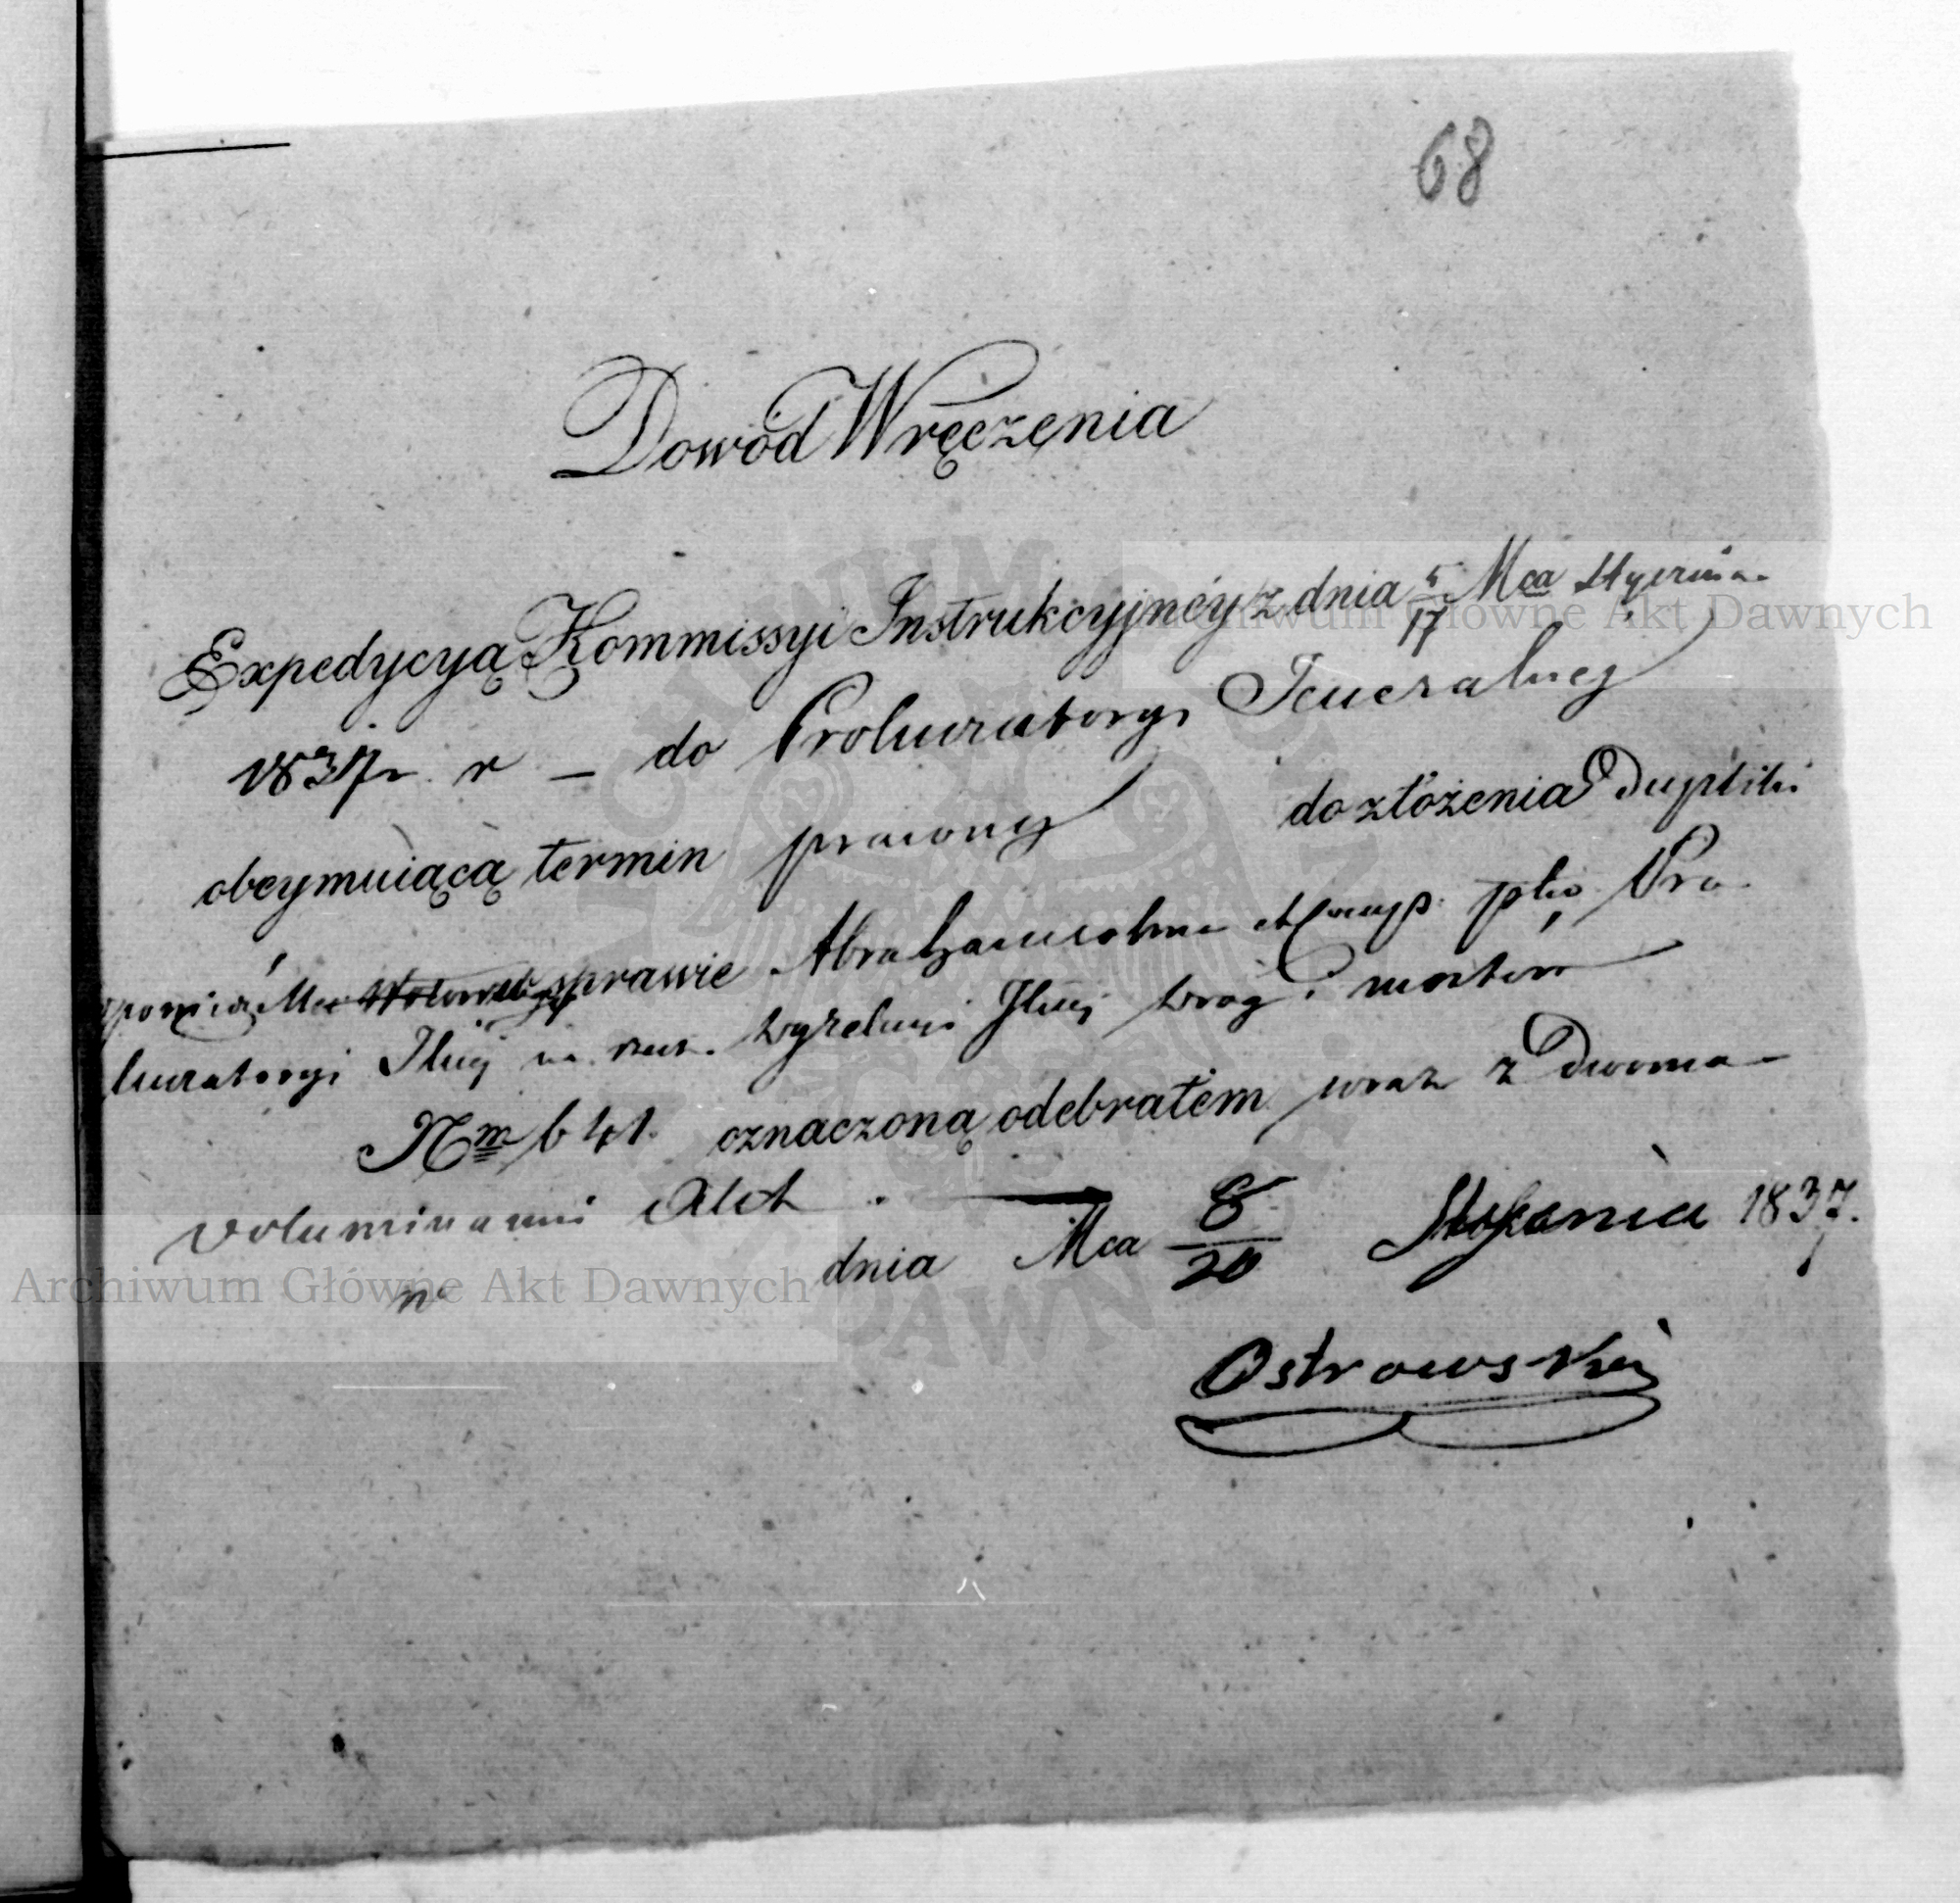 68
Dowód Wręczenia
Expedycyą Kommissyi Instrukcyjnéy z dnia 5/17 Mca Stycznia
1837 r — do Prokuratoryi Jeneralney
obeymuiącą termin prawny do złożenia Dupliki
sprawie Abrahamsohna
kuratoryi Jlney na rzecz. Jlney dróg i mostów
Nrm 641. oznaczoną odebrałem wraz z Dwoma
voluminami Akt.
dnia Mca 8/20 Stycznia 1837.
Ostrowski
Archiwum Główne Akt Dawnych
Archiwum Główne Akt Dawnych